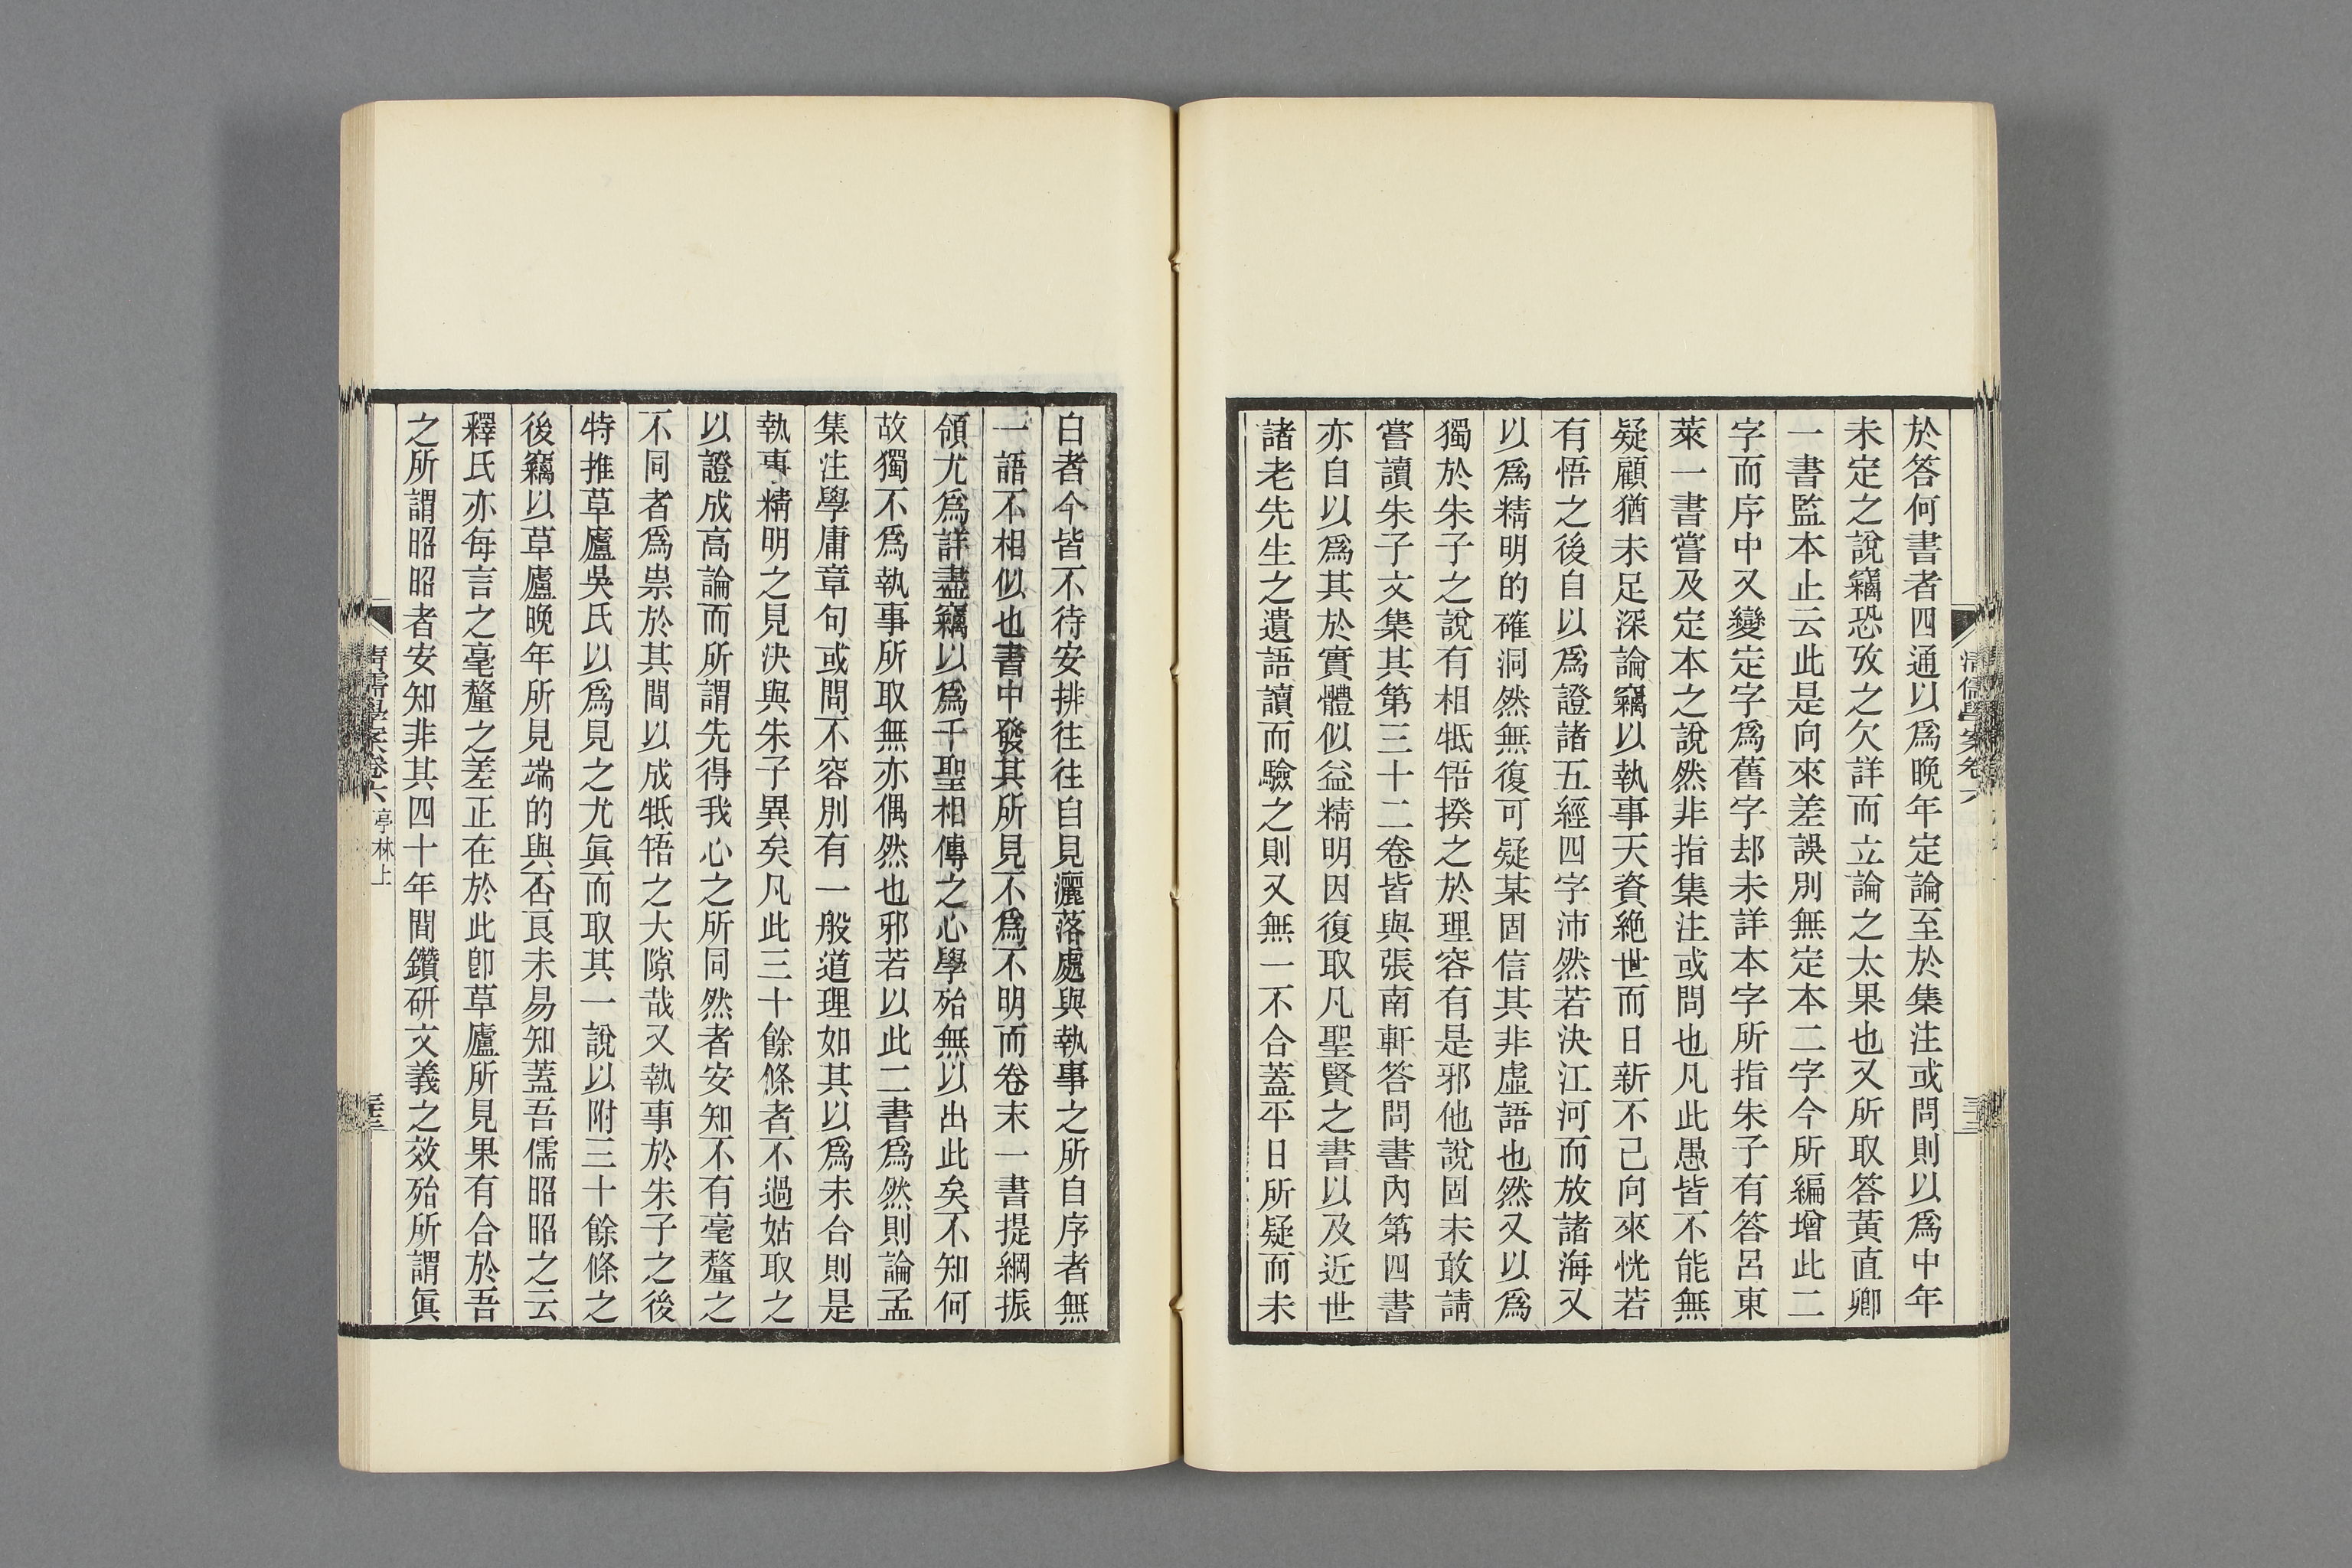 於答何書者四通以爲晚年定論至於集注或問則以爲中年
未定之說竊恐攷之欠詳而立論之太果也又所取答黃直卿
一書監本止云此是向來差誤別無定本二字今所編增此二
字而序中又變定字爲舊字却未詳本字所指朱子有答呂東
萊一書嘗及定本之說然非指集注或問也凡此愚皆不能無
疑顧猶未足深論竊以執事天資絶世而日新不已向來恍若
有悟之後自以爲證諸五經四字沛然若決江河而放諸海又
以爲精明的確洞然無復可疑某固信其非虛語也然又以爲
獨於朱子之說有相牴牾揆之於理容有是邪他說固未敢請
嘗讀朱子文集其第三十二卷皆與張南軒答問書內第四書
亦自以爲其於實體似益精明因復取凡聖賢之書以及近世
諸老先生之遺語讀而驗之則又無一不合蓋平日所疑而未
清儒學案卷六
白者今皆不待安排往往自見灑落處與執事之所自序者無
一語不相似也書中發其所見不爲不明而卷末一書提綱振
領尤爲詳盡竊以爲千聖相傳之心學殆無以出此矣不知何
故獨不爲執事所取無亦偶然也邪若以此二書爲然則論孟
集注學庸章句或問不容別有一般道理如其以爲未合則是
執事精明之見決與朱子異矣凡此三十餘條者不過姑取之
以證成高論而所謂先得我心之所同然者安知不有毫釐之
不同者爲祟於其間以成牴牾之大隙哉又執事於朱子之後
特推草廬吳氏以爲見之尤眞而取其一說以附三十餘條之
後竊以草廬晚年所見端的與否良未易知蓋吾儒昭昭之云
釋氏亦每言之毫釐之差正在於此卽草廬所見果有合於吾
之所謂昭昭者安知非其四十年間鑽研文義之效殆所謂眞
清儒學案卷六 亭林上